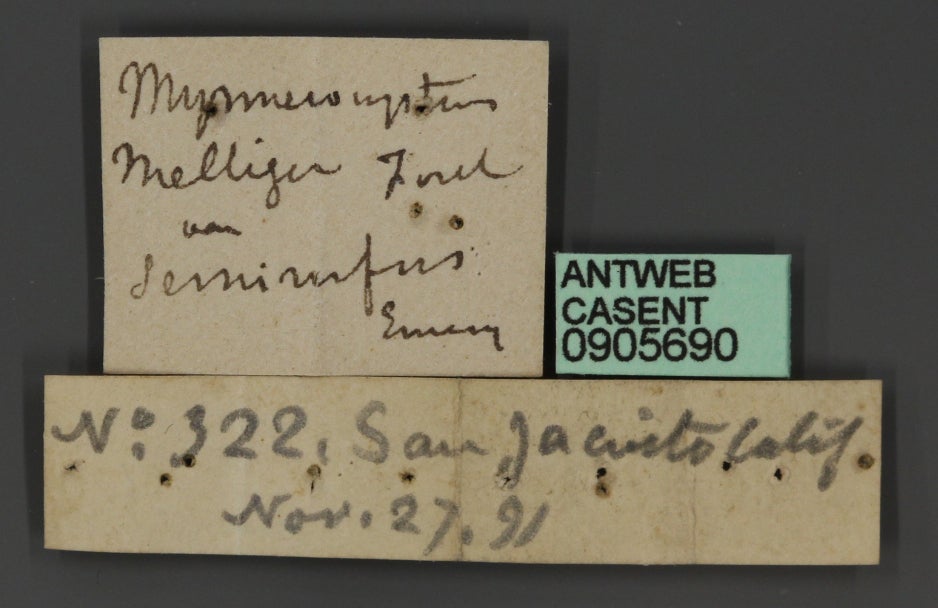 Myrmecocystus
Melliger Forel
var
semirufus.
Emery
ANTWEB
CASENT
0905690
No. 322. San Jacinto Calif
Nov. 27. 91